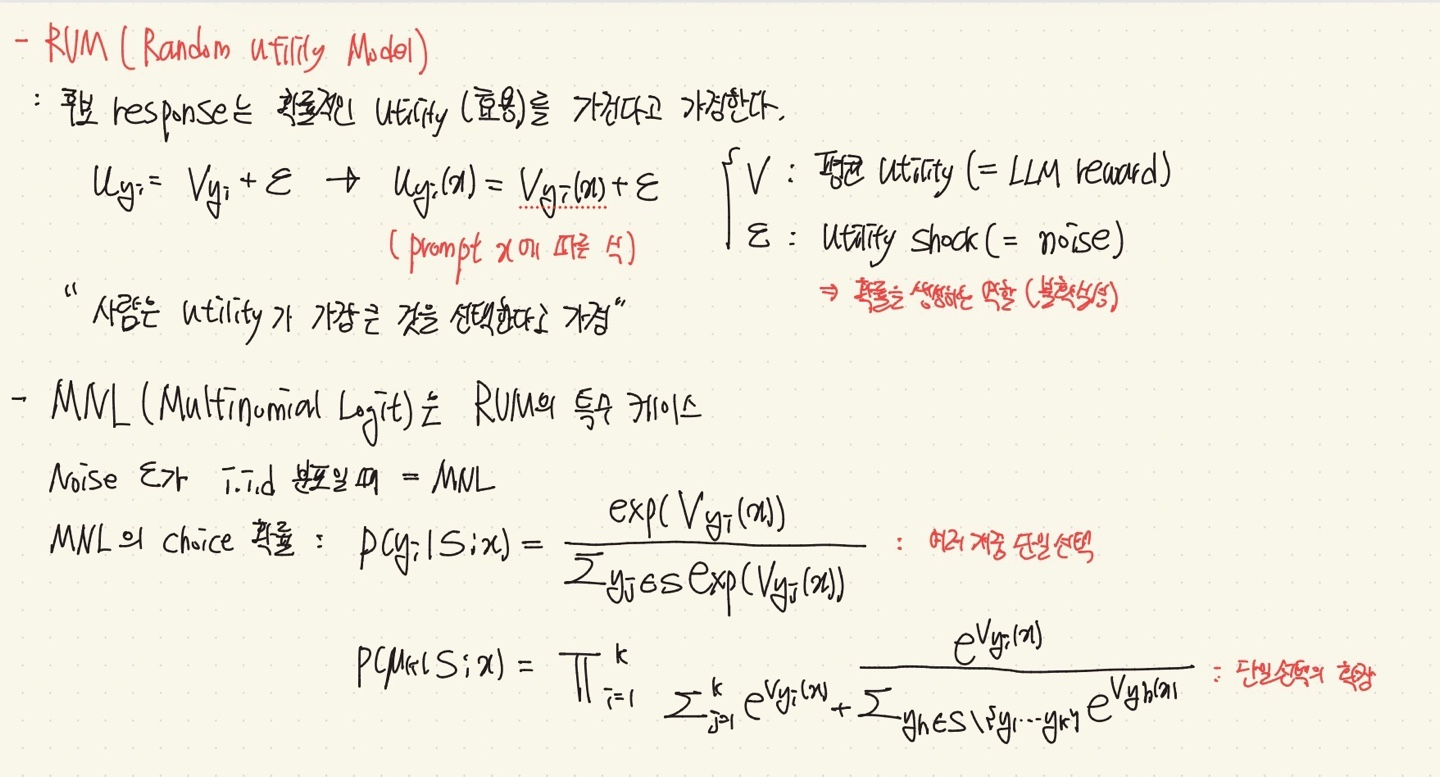 - RUM (Random Utility Model)
: 후보 response는 확률적인 utility (효용)를 가진다고 가정한다.
U_{y_i} = V_{y_i} + ε → U_{y_i}(x) = V_{y_i}(x) + ε
(prompt x에 따른 식)
V : 평균 utility (= LLM reward)
ε : Utility shock (= noise)
⇒ 확률을 생성하는 역할 (불확실성)
“사람은 utility가 가장 큰 것을 선택한다고 가정”
- MNL (Multinomial Logit)은 RUM의 특수 케이스
Noise ε가 i.i.d 분포일 때 = MNL
MNL의 choice 확률 : P(y_i|S;x) = exp(V_{y_i}(x)) / Σ_{y_j∈S} exp(V_{y_j}(x)) : 여러 개중 단일 선택
P(μ_k|S;x) = ∏_{i=1}^{k} e^{V_{y_i}(x)} / Σ_{j=1}^{k} e^{V_{y_i}(x)} + Σ_{y_h∈S\{y_1...y_k}} e^{V_{y_h}(x)} : 단일선택의 확장